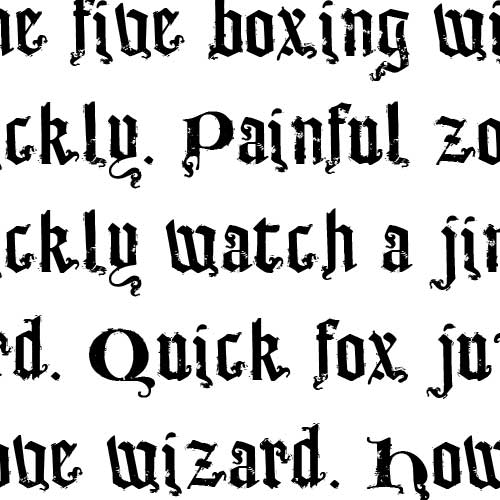 he five boxing wi
ckly. Painful zo
ckly watch a jin
rd. Quick fox ju
ove wizard. How